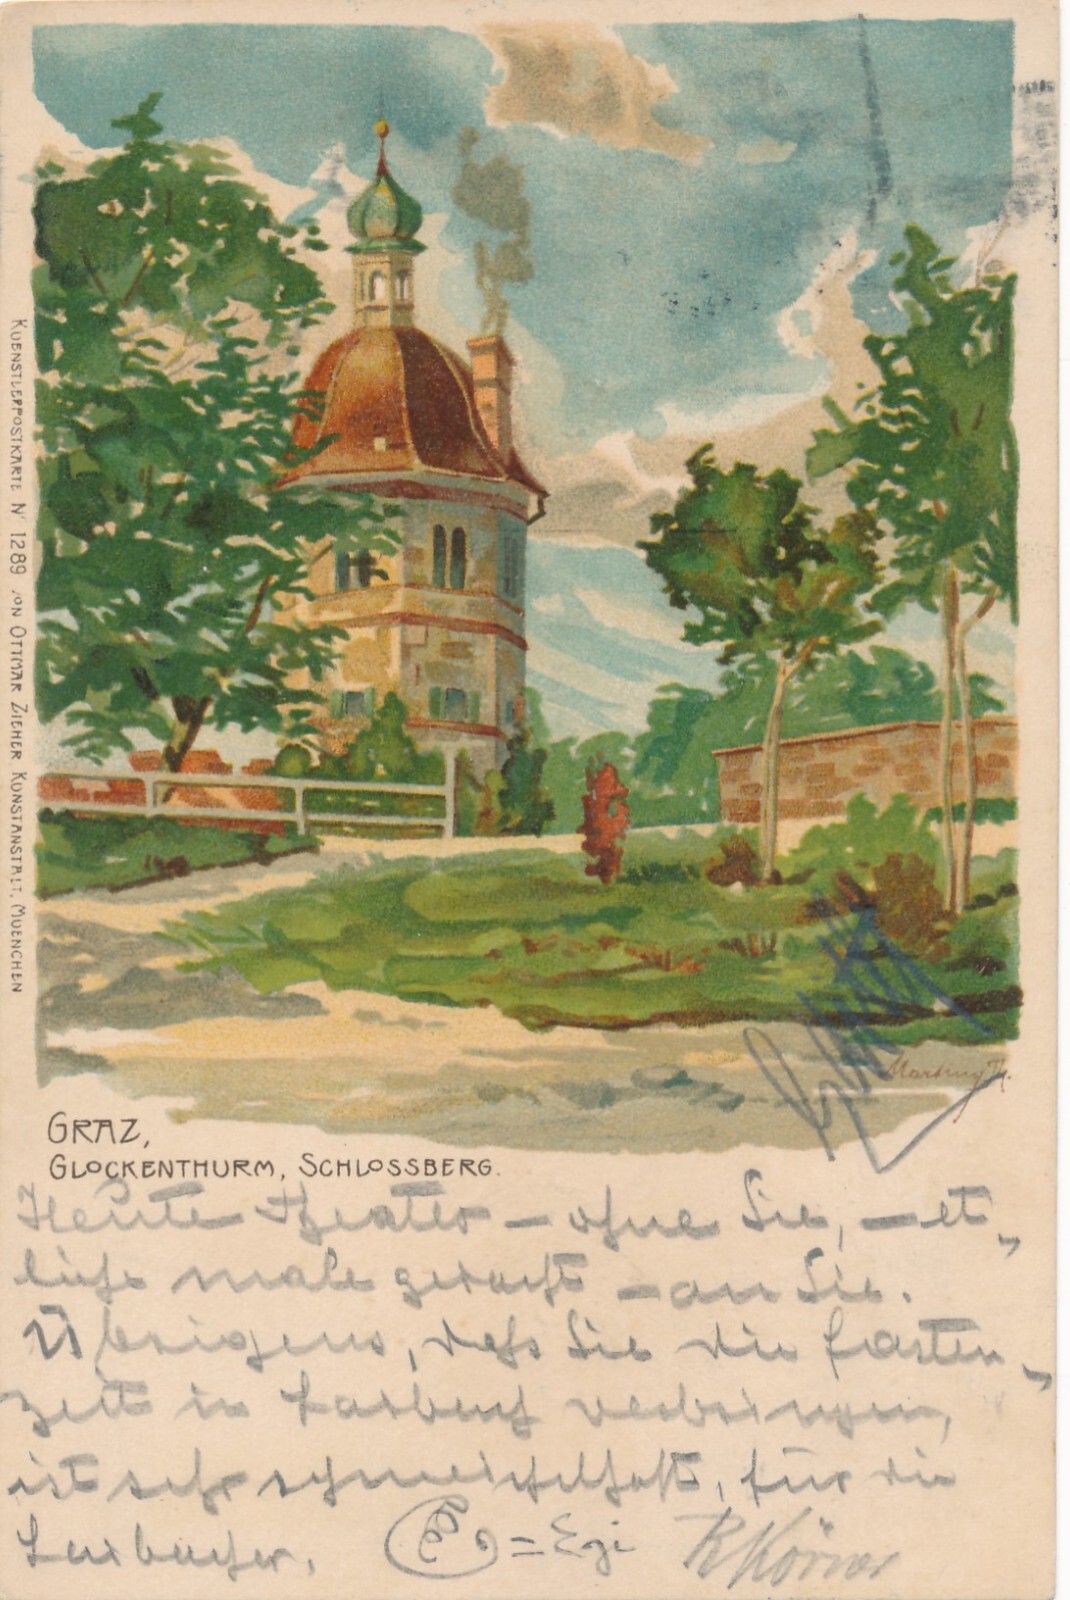 KUENSTLERPOSTKARTE Nº 1289 VON OTTMAR ZIEHER KUNSTANSTALT, MUENCHEN
Martiny Th.
GRAZ,
GLOCKENTHURM, SCHLOSSBERG.
Heute Theater – ohne Sie, – et,
liche male gedacht – an Sie.
Übrigens, daß Sie die Fasten,
zeit in Laibach verbringen,
ist sehr schmeichelhaft, für die
Laibacher. = Egi R Körner